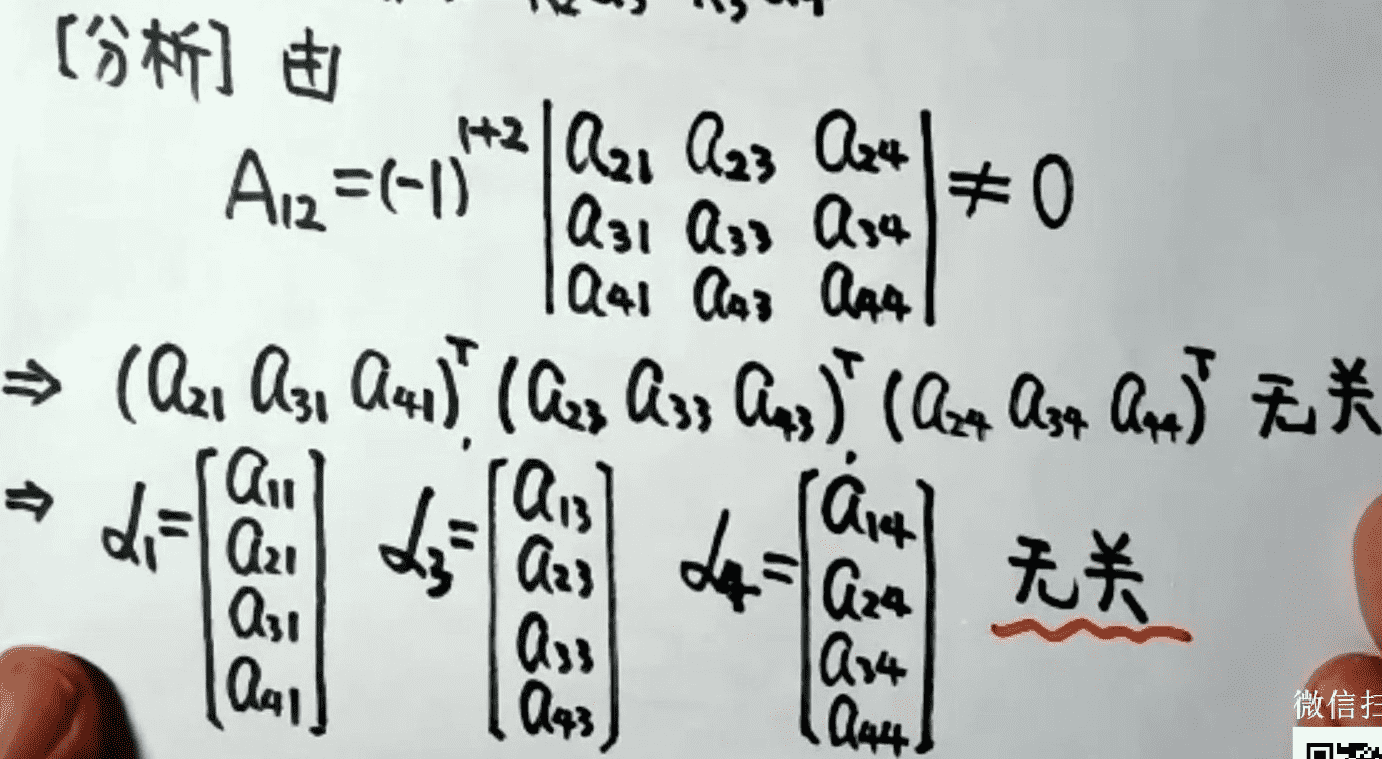 [分析] 由
A₁₂=(-1)¹⁺² | a₂₁ a₂₃ a₂₄ | ≠0
| a₃₁ a₃₃ a₃₄ |
| a₄₁ a₄₃ a₄₄ |
⇒ (a₂₁ a₃₁ a₄₁)ᵀ, (a₂₃ a₃₃ a₄₃)ᵀ, (a₂₄ a₃₄ a₄₄)ᵀ 无关
⇒ α₁=[a₁₁ a₂₁ a₃₁ a₄₁] α₃=[a₁₃ a₂₃ a₃₃ a₄₃] α₄=[a₁₄ a₂₄ a₃₄ a₄₄] 无关
微信扫